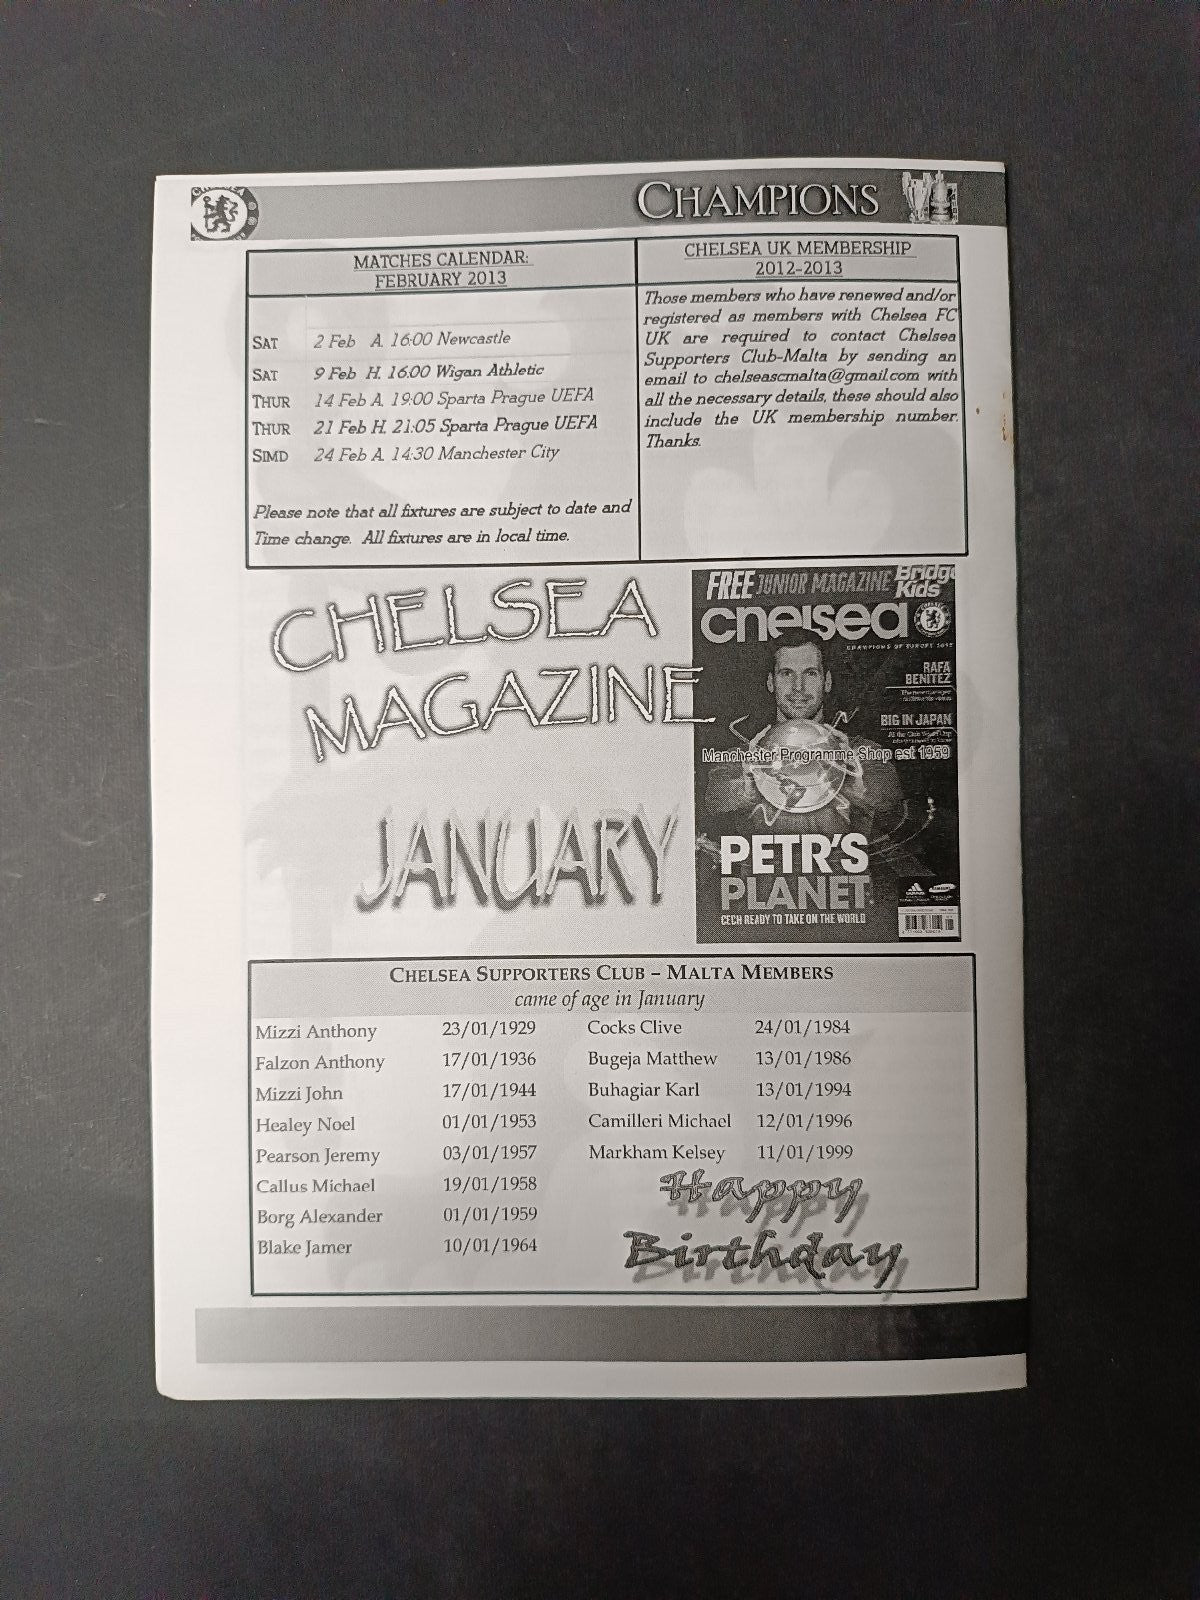 CHAMPIONS
MATCHES CALENDAR:
FEBRUARY 2013
SAT 2 Feb A. 16:00 Newcastle
SAT 9 Feb H. 16.00 Wigan Athletic
THUR 14 Feb A. 19:00 Sparta Prague UEFA
THUR 21 Feb H. 21:05 Sparta Prague UEFA
SIMD 24 Feb A. 14:30 Manchester City
Please note that all fixtures are subject to date and
Time change. All fixtures are in local time.
CHELSEA UK MEMBERSHIP
2012-2013
Those members who have renewed and/or
registered as members with Chelsea FC
UK are required to contact Chelsea
Supporters Club-Malta by sending an
email to chelseascmalta@gmail.com with
all the necessary details, these should also
include the UK membership number.
Thanks.
CHELSEA
MAGAZINE
JANUARY
FREE JUNIOR MAGAZINE Bridge
Kids
chelsea
CHAMPIONS OF EUROPE 2012
RAFA
BENITEZ
BIG IN JAPAN
Manchester Programme Shop est 1959
PETR'S
PLANET
CECH READY TO TAKE ON THE WORLD
adidas
SAMSUNG
CHELSEA SUPPORTERS CLUB – MALTA MEMBERS
came of age in January
Mizzi Anthony 23/01/1929 Cocks Clive 24/01/1984
Falzon Anthony 17/01/1936 Bugeja Matthew 13/01/1986
Mizzi John 17/01/1944 Buhagiar Karl 13/01/1994
Healey Noel 01/01/1953 Camilleri Michael 12/01/1996
Pearson Jeremy 03/01/1957 Markham Kelsey 11/01/1999
Callus Michael 19/01/1958
Borg Alexander 01/01/1959
Blake Jamer 10/01/1964
Happy
Birthday